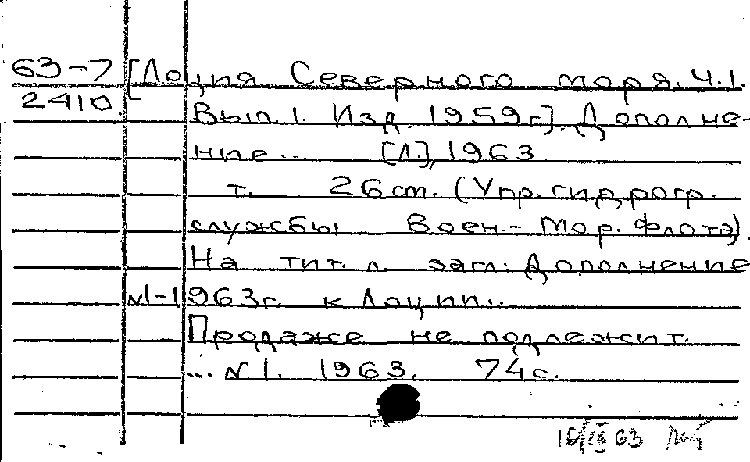 63-7 [Лоция Северного моря. Ч.1.
2410. Вып.1. Изд. 1959г.]. Дополне-
ние... [Л.], 1963.
т. 26 см. (Упр. гидрогр.
службы Воен.-Мор. Флота).
На тит. л. загл.: Дополнение
№1-1963г. к Лоции...
Продаже не подлежит.
... №1. 1963. 74с.
63